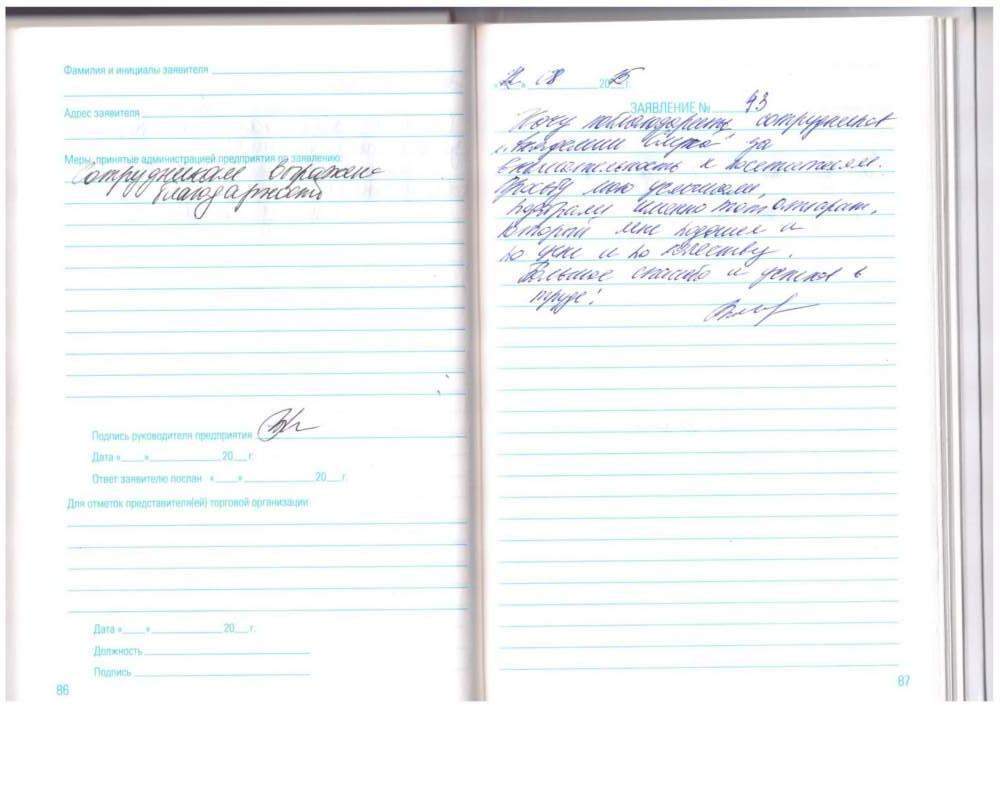 Фамилия и инициалы заявителя
Адрес заявителя
Меры, принятые администрацией предприятия по заявлению:
Сотрудникам выражена
благодарность
Подпись руководителя предприятия
Дата «___» ___ 20__ г.
Ответ заявителю послан «___» ___ 20__ г.
Для отметок представителя(ей) торговой организации
Дата «___» ___ 20__ г.
Должность
Подпись
86
08 2015 г.
ЗАЯВЛЕНИЕ № 43
Хочу поблагодарить сотрудников
"Академии Слуха" за
внимательность к посетителям.
Просьбу мою услышали,
подобрали именно тот аппарат,
который мне подошел и
по цене и по качеству.
Большое спасибо и успехов в
труде!
87